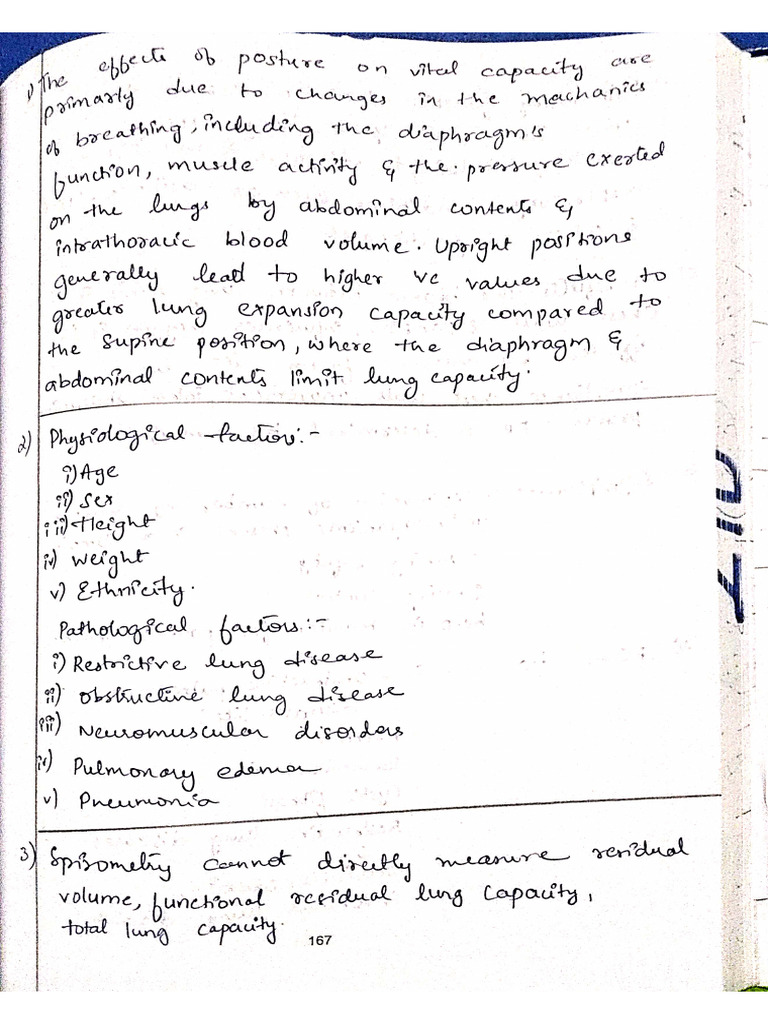 1) The effects of posture on vital capacity are
primarly due to changes in the machanics
of breathing, including the diaphragm's
function, muscle activity & the pressure exerted
on the lungs by abdominal contents &
intrathoracic blood volume. Upright positions
generally lead to higher vc values due to
greater lung expansion capacity compared to
the supine position, where the diaphragm &
abdominal contents limit lung capacity.
2) Physiological factors:-
i) Age
ii) Sex
iii) Height
iv) weight
v) Ethnicity.
Pathological factors:-
i) Restrictive lung disease
ii) Obstructive lung disease
iii) Neuromuscular disorders
iv) Pulmonary edema
v) Pneumonia
3) Spirometry cannot directly measure residual
volume, functional residual lung capacity,
total lung capacity.
167